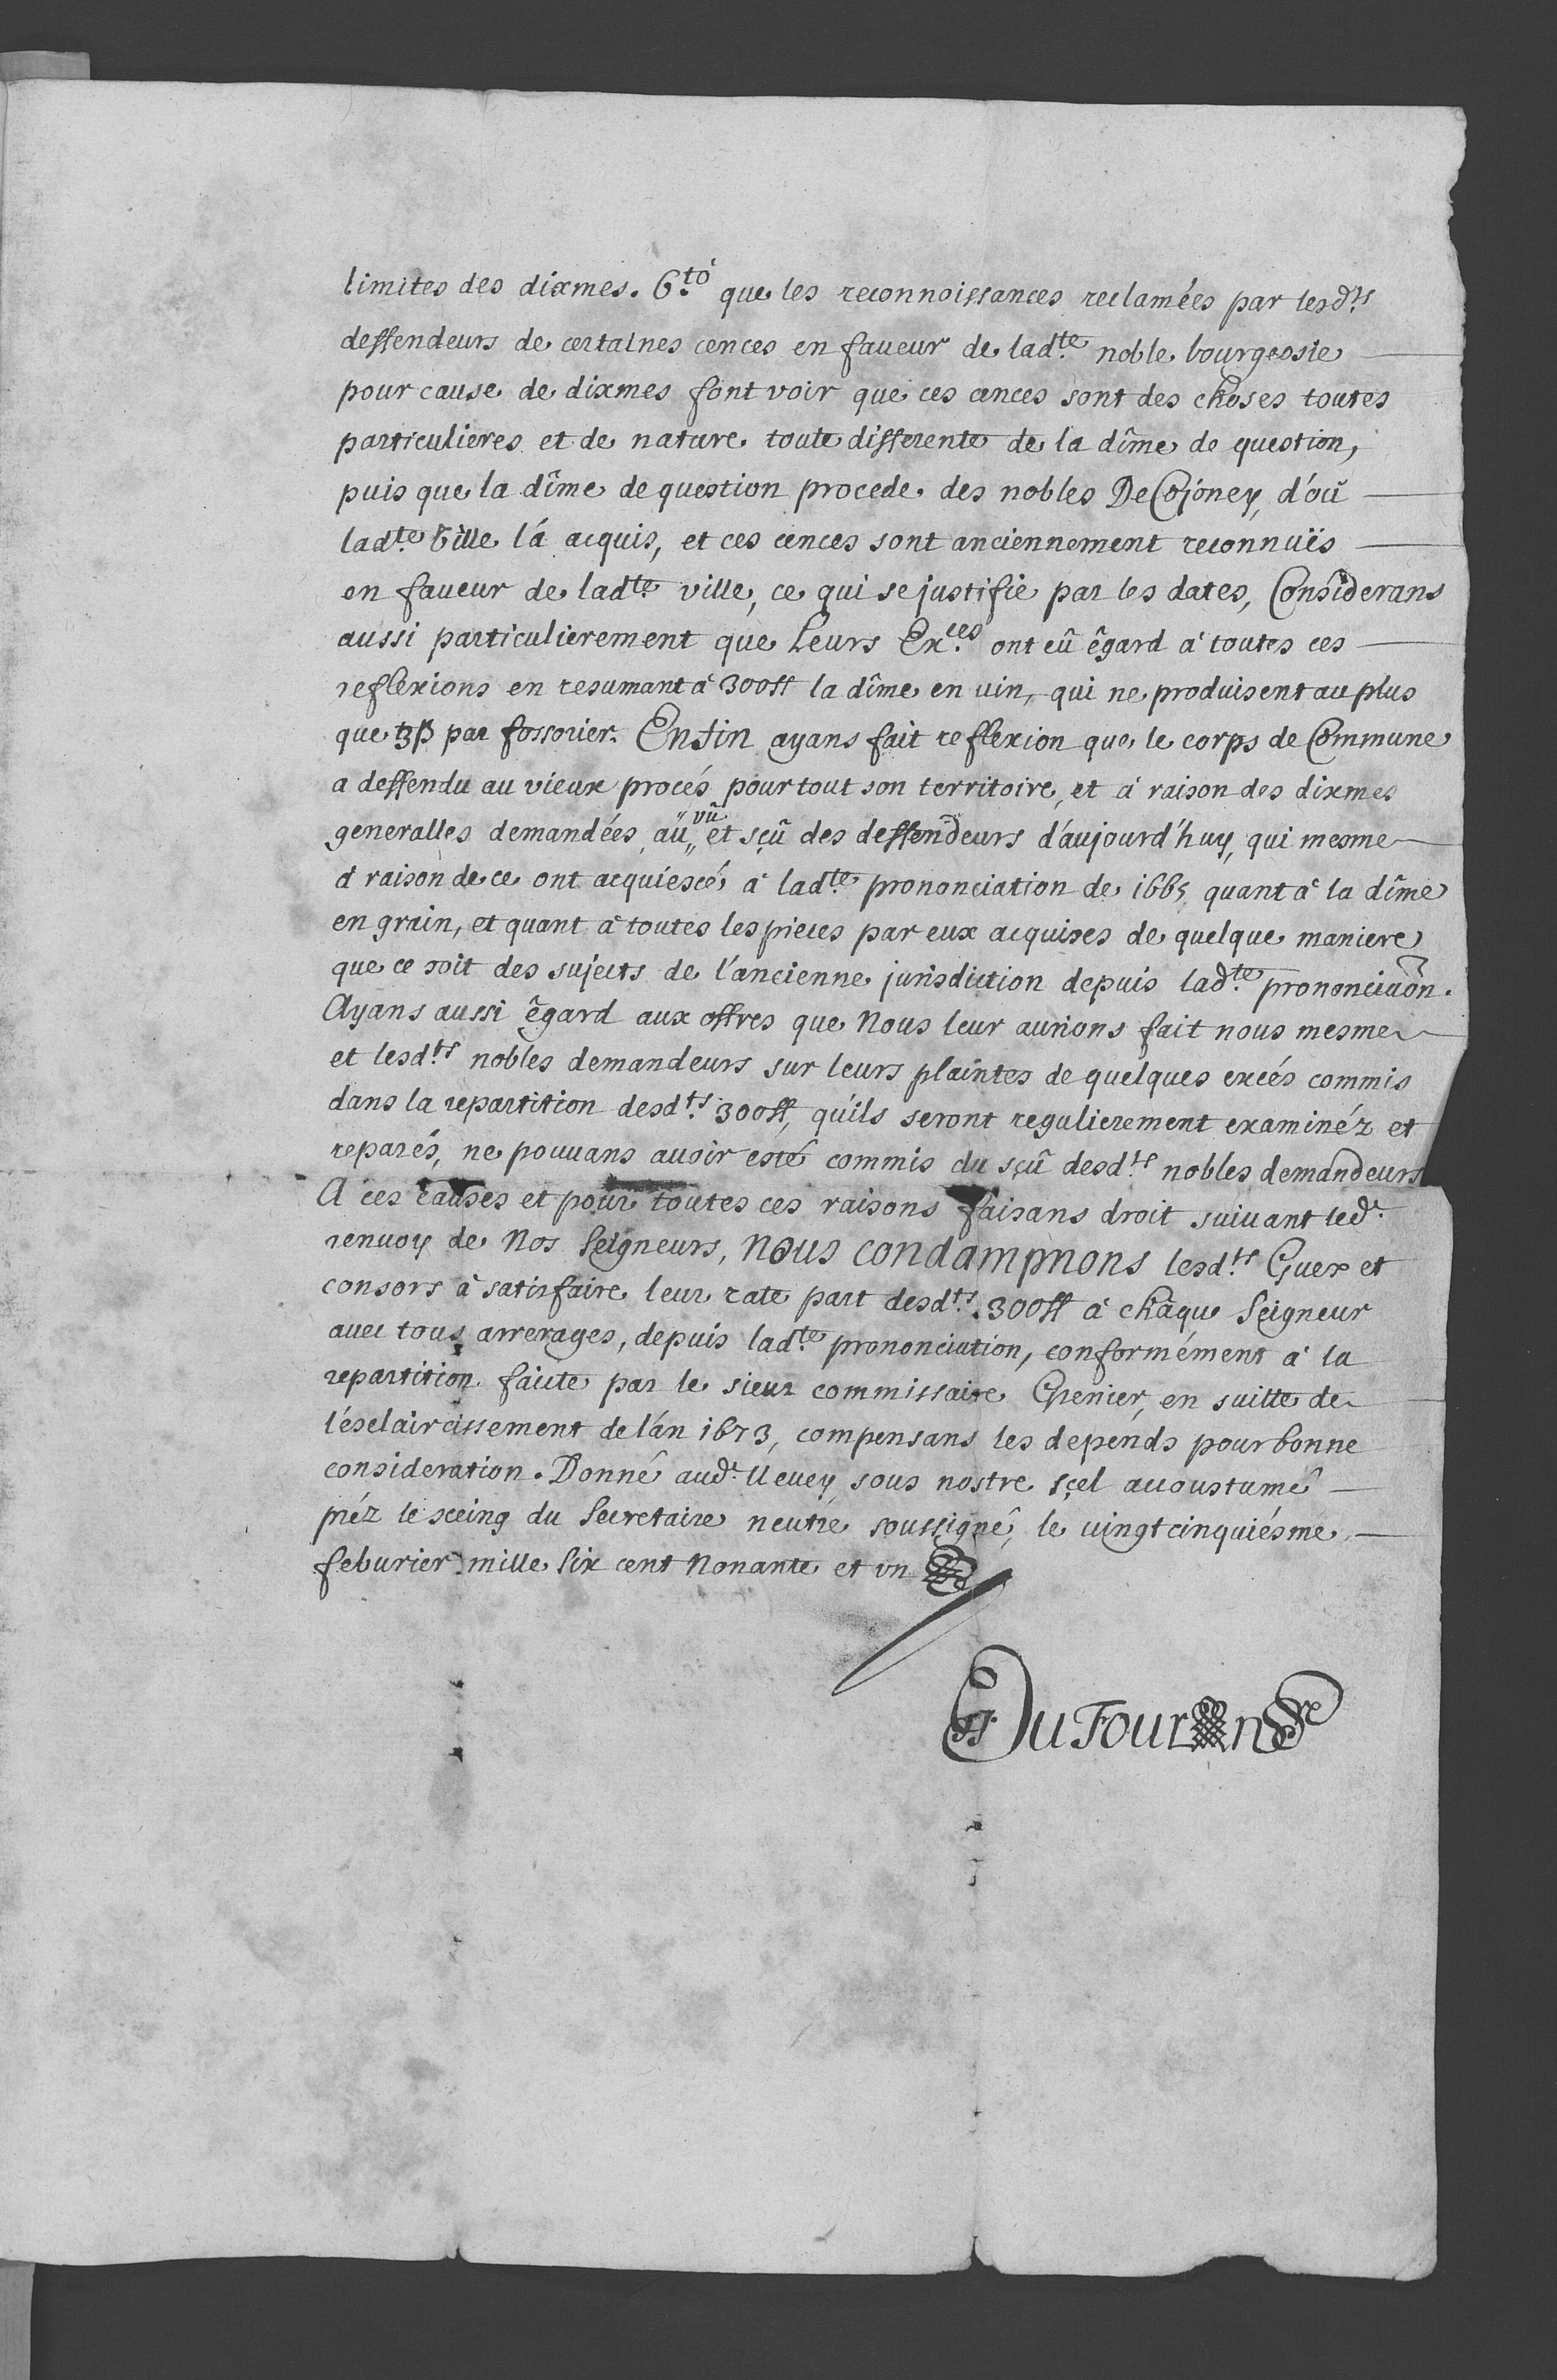 limites des dixmes. 6.to que les reconnoissances reclamées par lesd.ts
deffendeurs de certaines cences en faueur de lad.te noble bourgeosie
pour cause de dixmes font voir que ces cences sont des choses toutes
particulieres et de nature toute differente de la dîme de question,
puis que la dîme de question procede des nobles De Cojoney, d'oû
lad.te Ville l'á acquis, et ces cences sont anciennement reconnuës
en faueur de lad.te ville, ce qui se justifie par les dates, Considerans
aussi particulierement que Leurs Ex.ces ont eû êgard à toutes ces
reflexions en resumant à 300ff la dîme en uin, qui ne produisent au plus
que 3ß par fossorier. Enfin ayans fait reflexion que le corps de Commune
a deffendu au vieux procés pour tout son territoire, et à raison des dixmes
generalles demandées, au vû et sçû des deffendeurs d'aujourd'huy, qui mesme
à raison de ce ont acquiescé à lad.te prononciation de 1665 quant à la dîme
en grain, et quant à toutes les pieces par eux acquises de quelque maniere
que ce soit des sujects de l'ancienne jurisdiction depuis lad.te prononciaõn.
Ayans aussi êgard aux offres que Nous leur aurions fait nous mesme
et lesd.ts nobles demandeurs sur leurs plaintes de quelques excés commis
dans la repartition desd.ts 300ff, qu'ils seront regulierement examinéz et
reparés, ne pouuans auoir esté commis du sçû desd.ts nobles demandeurs
A ces causes et pour toutes ces raisons faisans droit suiuant led.t
renuoy de Nos Seigneurs, Nous condampnons lesd.ts Guex et
consors à satisfaire leur rate part desd.ts 300ff à châque Seigneur
auec tous arrerages, depuis lad.te prononciation, conformément à la
repartition faicte par le sieur commissaire Grenier, en suitte de
l'esclaircissement de l'an 1673, compensans les depends pour bonne
consideration. Donné aud.t Ueuey sous nostre sçel accoustumé
préz le sceing du Secretaire neutre soussigné, le uingt cinquiésme
feburier mille Six cent Nonante et un
DuFour